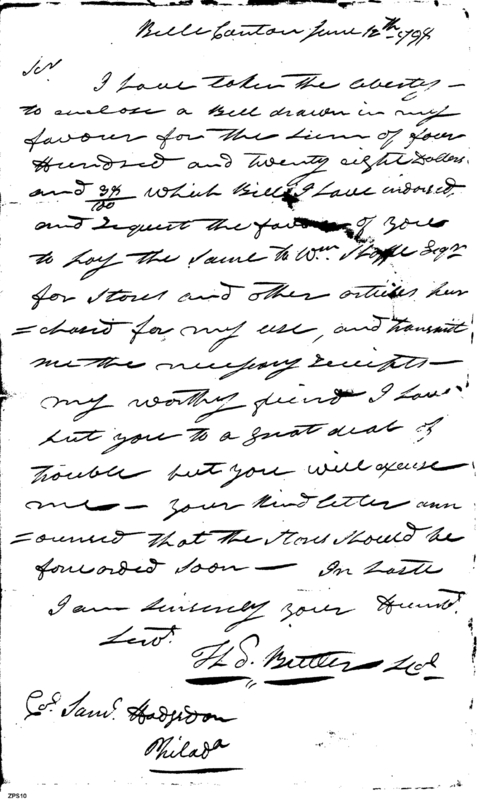 Belle Canton June 12th 1798
Sir.
I have taken the liberty –
to enclose a Bill drawn in my
favour for the sum of four
Hundred and twenty eight Dollars
and 38/100 which Bill I have indorsed
and request the favour of you
to pay the same to Wm. Esqr
for Stores and other articles pur
=chased for my use, and transmit
me the necessary receipts –
my worthy friend I have
put you to a great deal of
trouble but you will excuse
me – your kind letter ann
=ounced that the stores should be
forwarded soon – In haste
I am sincerely your Humb.
Serv.
Butler
Col Saml. Hodgdon
Philada
ZPS10